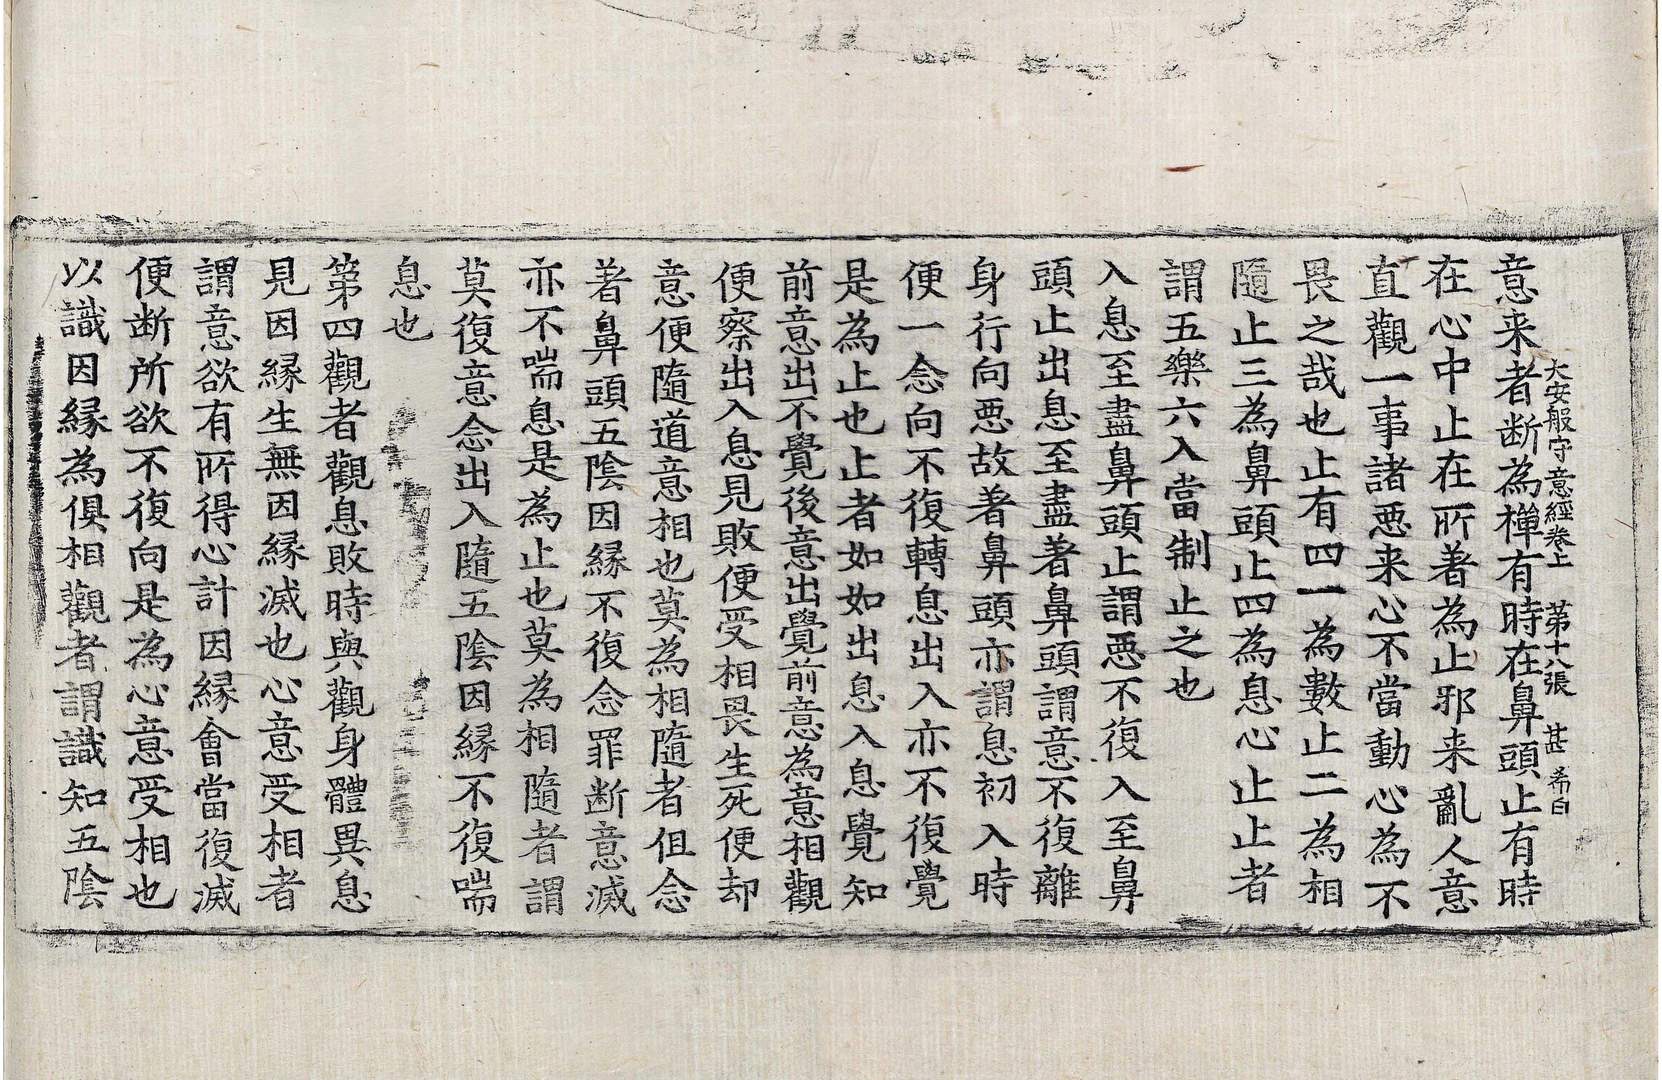 大安般守意經卷上　第十八張　甚　希白
意来者断為禪有時在鼻頭止有時
在心中止在所著為止邪来亂人意
直觀一事諸悪来心不當動心為不
畏之哉也止有四一為數止二為相
隨止三為鼻頭止四為息心止止者
謂五樂六入當制止之也
入息至盡鼻頭止謂悪不復入至鼻
頭止出息至盡著鼻頭謂意不復離
身行向悪故著鼻頭亦謂息初入時
便一念向不復轉息出入亦不復覺
是為止也止者如如出息入息覺知
前意出不覺後意出覺前意為意相觀
便察出入息見敗便受相畏生死便却
意便隨道意相也莫為相隨者但念
著鼻頭五陰因縁不復念罪断意滅
亦不喘息是為止也莫為相隨者謂
莫復意念出入隨五陰因縁不復喘
息也
第四觀者觀息敗時與觀身體異息
見因縁生無因縁滅也心意受相者
謂意欲有所得心計因縁會當復滅
便断所欲不復向是為心意受相也
以識因縁為俱相觀者謂識知五陰